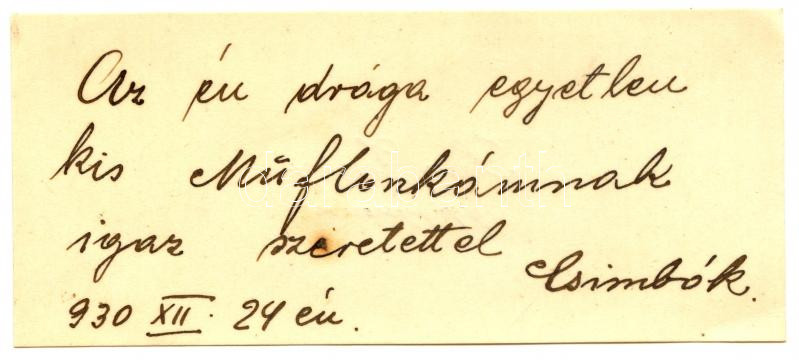 Az én drága egyetlen
kis Müflonkámnak
igaz szeretettel
Csimbók.
930 XII. 24 én.